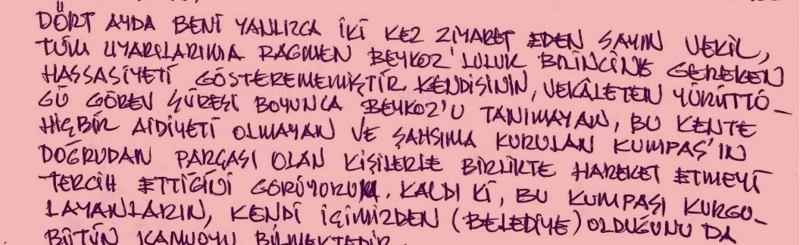 DÖRT AYDA BENİ YANLIZCA İKİ KEZ ZİYARET EDEN SAYIN VEKİL,
TÜM UYARILARIMA RAĞMEN BEYKOZ'LULUK BİLİNCİNE GEREKEN
HASSASİYETİ GÖSTEREMEMİŞTİR. KENDİSİNİN, VEKÂLETEN YÜRÜTTÜ-
ĞÜ GÖREV SÜRESİ BOYUNCA BEYKOZ'U TANIMAYAN, BU KENTE
HİÇBİR AİDİYETİ OLMAYAN VE ŞAHSIMA KURULAN KUMPAS'IN
DOĞRUDAN PARÇASI OLAN KİŞİLERLE BİRLİKTE HAREKET ETMEYİ
TERCİH ETTİĞİNİ GÖRÜYORUM. KALDI Kİ, BU KUMPASI KURGU-
LAYANLARIN, KENDİ İÇİMİZDEN (BELEDİYE) OLDUĞUNU DA
BÜTÜN KAMUOYU BİLMEKTEDİR.